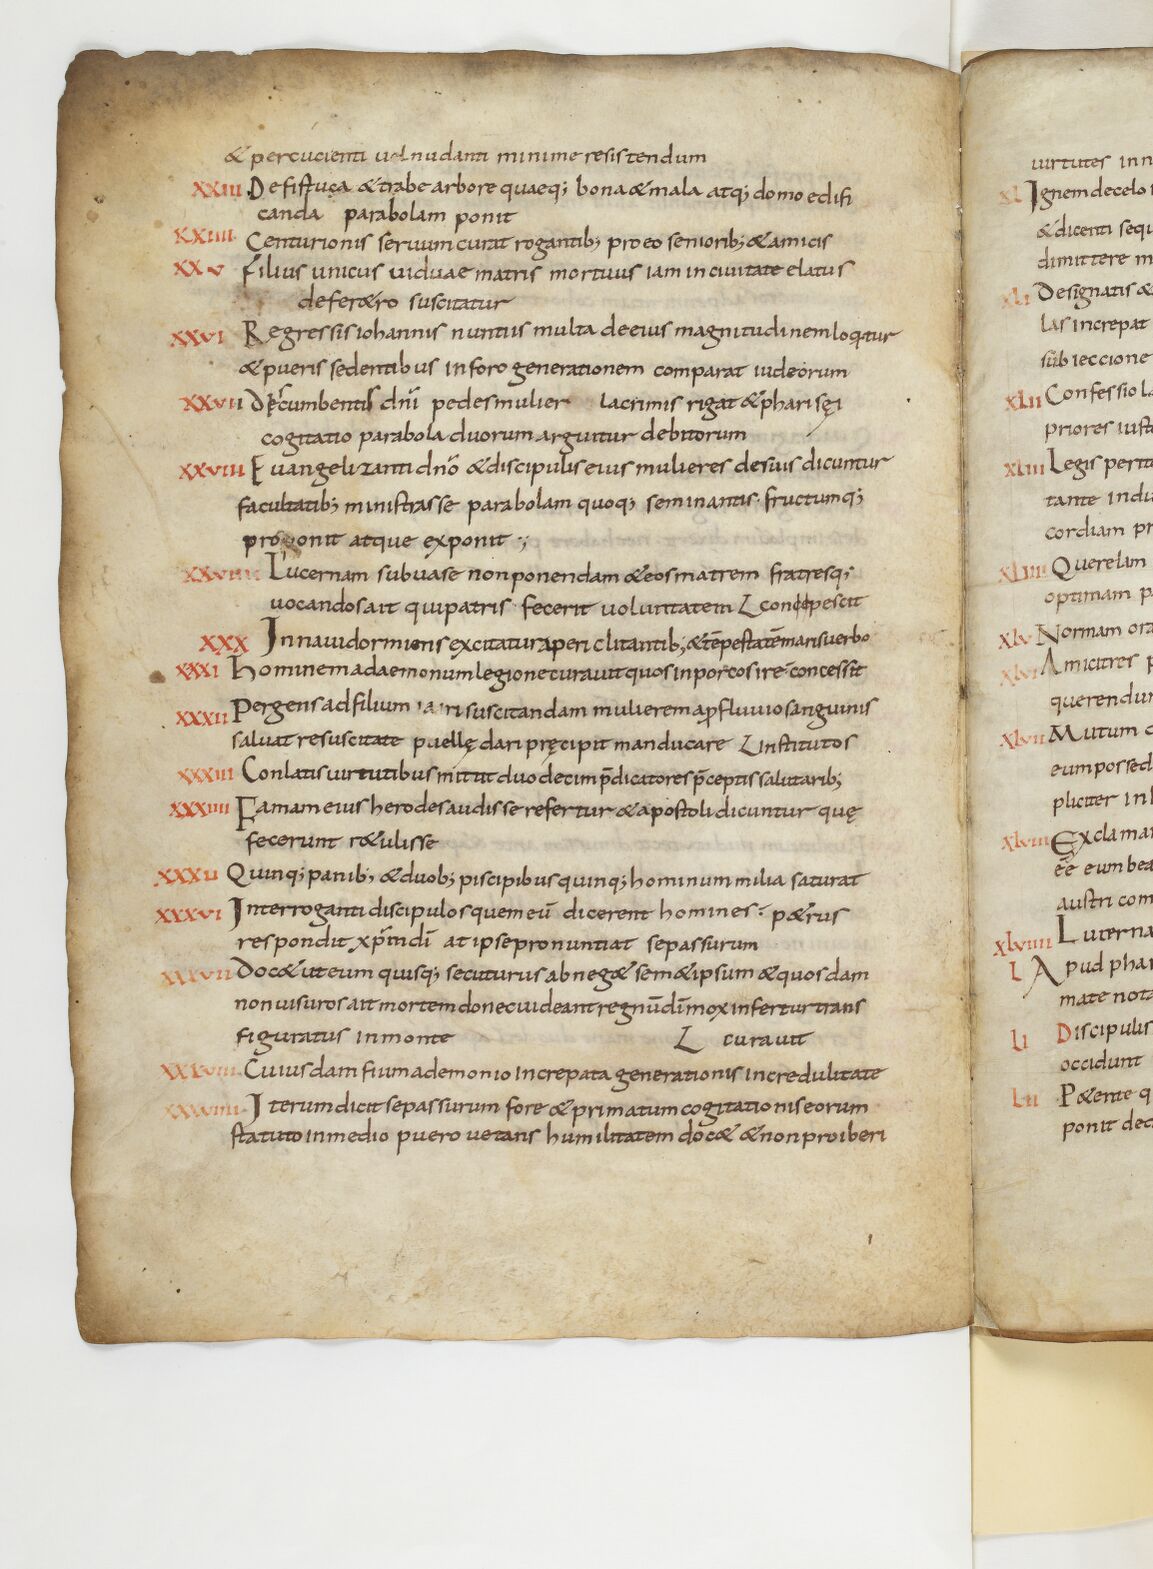 & percucienti uel nudanti minime resistendum
XXIII De fistuca & trabe arbore quaeq; bona & mala atq; domo edifi
canda parabolam ponit
XXIIII Centurionis seruum curat rogantib; pro eo seniorib; & amicis
XXV Filius unicus uiduae matris mortuus iam in ciuitate elatus
de fer&ro suscitatur
XXVI Regressis iohannis nuntiis multa de eius magnitudinem loqitur
& pueris sedentibus in foro generationem comparat iudeorum
XXVII Discumbentis dni pedes mulier lacrimis rigat & pharisęi
cogitatio parabola duorum arguitur debitorum
XXVIII Euangelizanti dno & discipulis eius mulieres de suis dicuntur
facultatib; ministrasse parabolam quoq; seminantis fructumq;
proponit atque exponit
XXVIIII Lucernam sub uase non ponendam & eos matrem fratresq;
uocandos ait qui patris fecerit uoluntatem conpescit
XXX In naui dormiens excitatur a periclitantib; & tēpestatē maris uerbo
XXXI Hominem a daemonum legione curauit quos in porcos ire concessit
XXXII Pergens ad filium iairi suscitandam mulierem a fluuio sanguinis
saluat resuscitate puellę dari pręcipit manducare institutos
XXXIII Conlatis uirtutibus mittit duodecim p̄dicatores p̄ceptis salutarib;
XXXIIII Famam eius herodes audisse refertur & apostoli dicuntur quę
fecerunt r&ulisse
XXXV Quinq; panib; & duob; piscipibus quinq; hominum milia saturat
XXXVI Interroganti discipulos quem eū dicerent homines p&rus
respondit xp̄m dī at ipse pronuntiat se passurum
XXXVII Doc& ut eum quisq; secuturus abneg& sem&ipsum & quosdam
non uisuros ait mortem donec uideant regnū dī mox infertur trans
figuratus in monte curauit
XXXVIII Cuiusdam fium a demonio increpata generationis incredulitate
XXXVIIII Iterum dicit se passurum fore & primatum cogitationis eorum
statuto in medio puero uetans humilitatem doc& & non proiberi
uirtutes in n
XL Ignem de celo
& dicenti sequ
dimittere m
XLI Designatis &
las increpat
sūbieccione
XLII Confessio la
priores iust
XLIII Legis perit
tante indu
cordiam pr
XLIIII Querelam
optimam p
XLV Normam ora
XLVI Amicitres p
querendum
XLVII Mutum
eum possed
pliciter in
XLVIII Exclamar
ēē eum bea
austri com
XLVIIII Lucerna
L Apud phar
mate nota
LI Discipulis
occidunt
LII P&ente q
ponit de